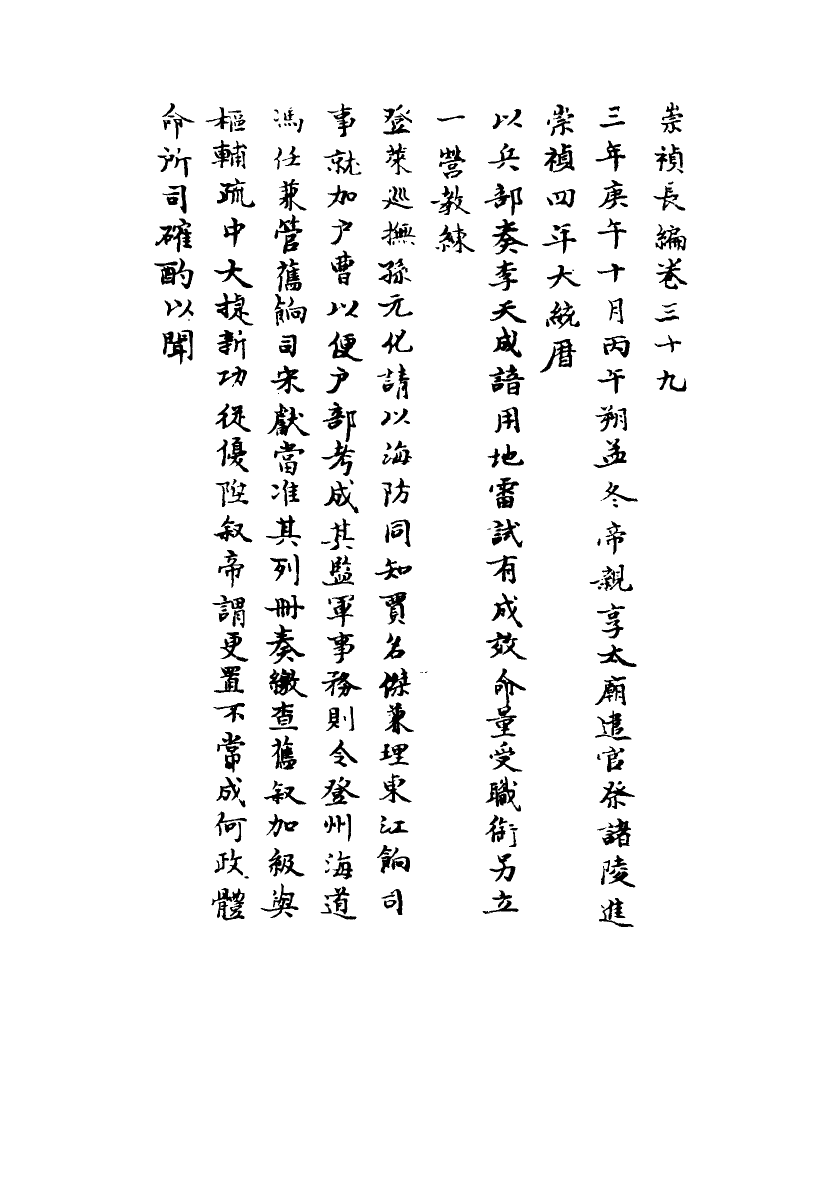 崇禎長編卷三十九
三年庚午十月丙午朔孟冬帝親享太廟遣官祭諸陵進
崇禎四年大統曆
以兵部奏李天成諳用地雷試有成效命量受職銜另立
一營教練
登萊巡撫孫元化請以海防同知賈名傑兼理東江餉司
事就加户曹以便户部考成其監軍事務則令登州海道
馮任兼管舊餉司宋獻當准其列冊奏繳查舊叙加級與
樞輔疏中大捷新功從優陞叙帝謂更置不當成何政體
命所司確酌以聞